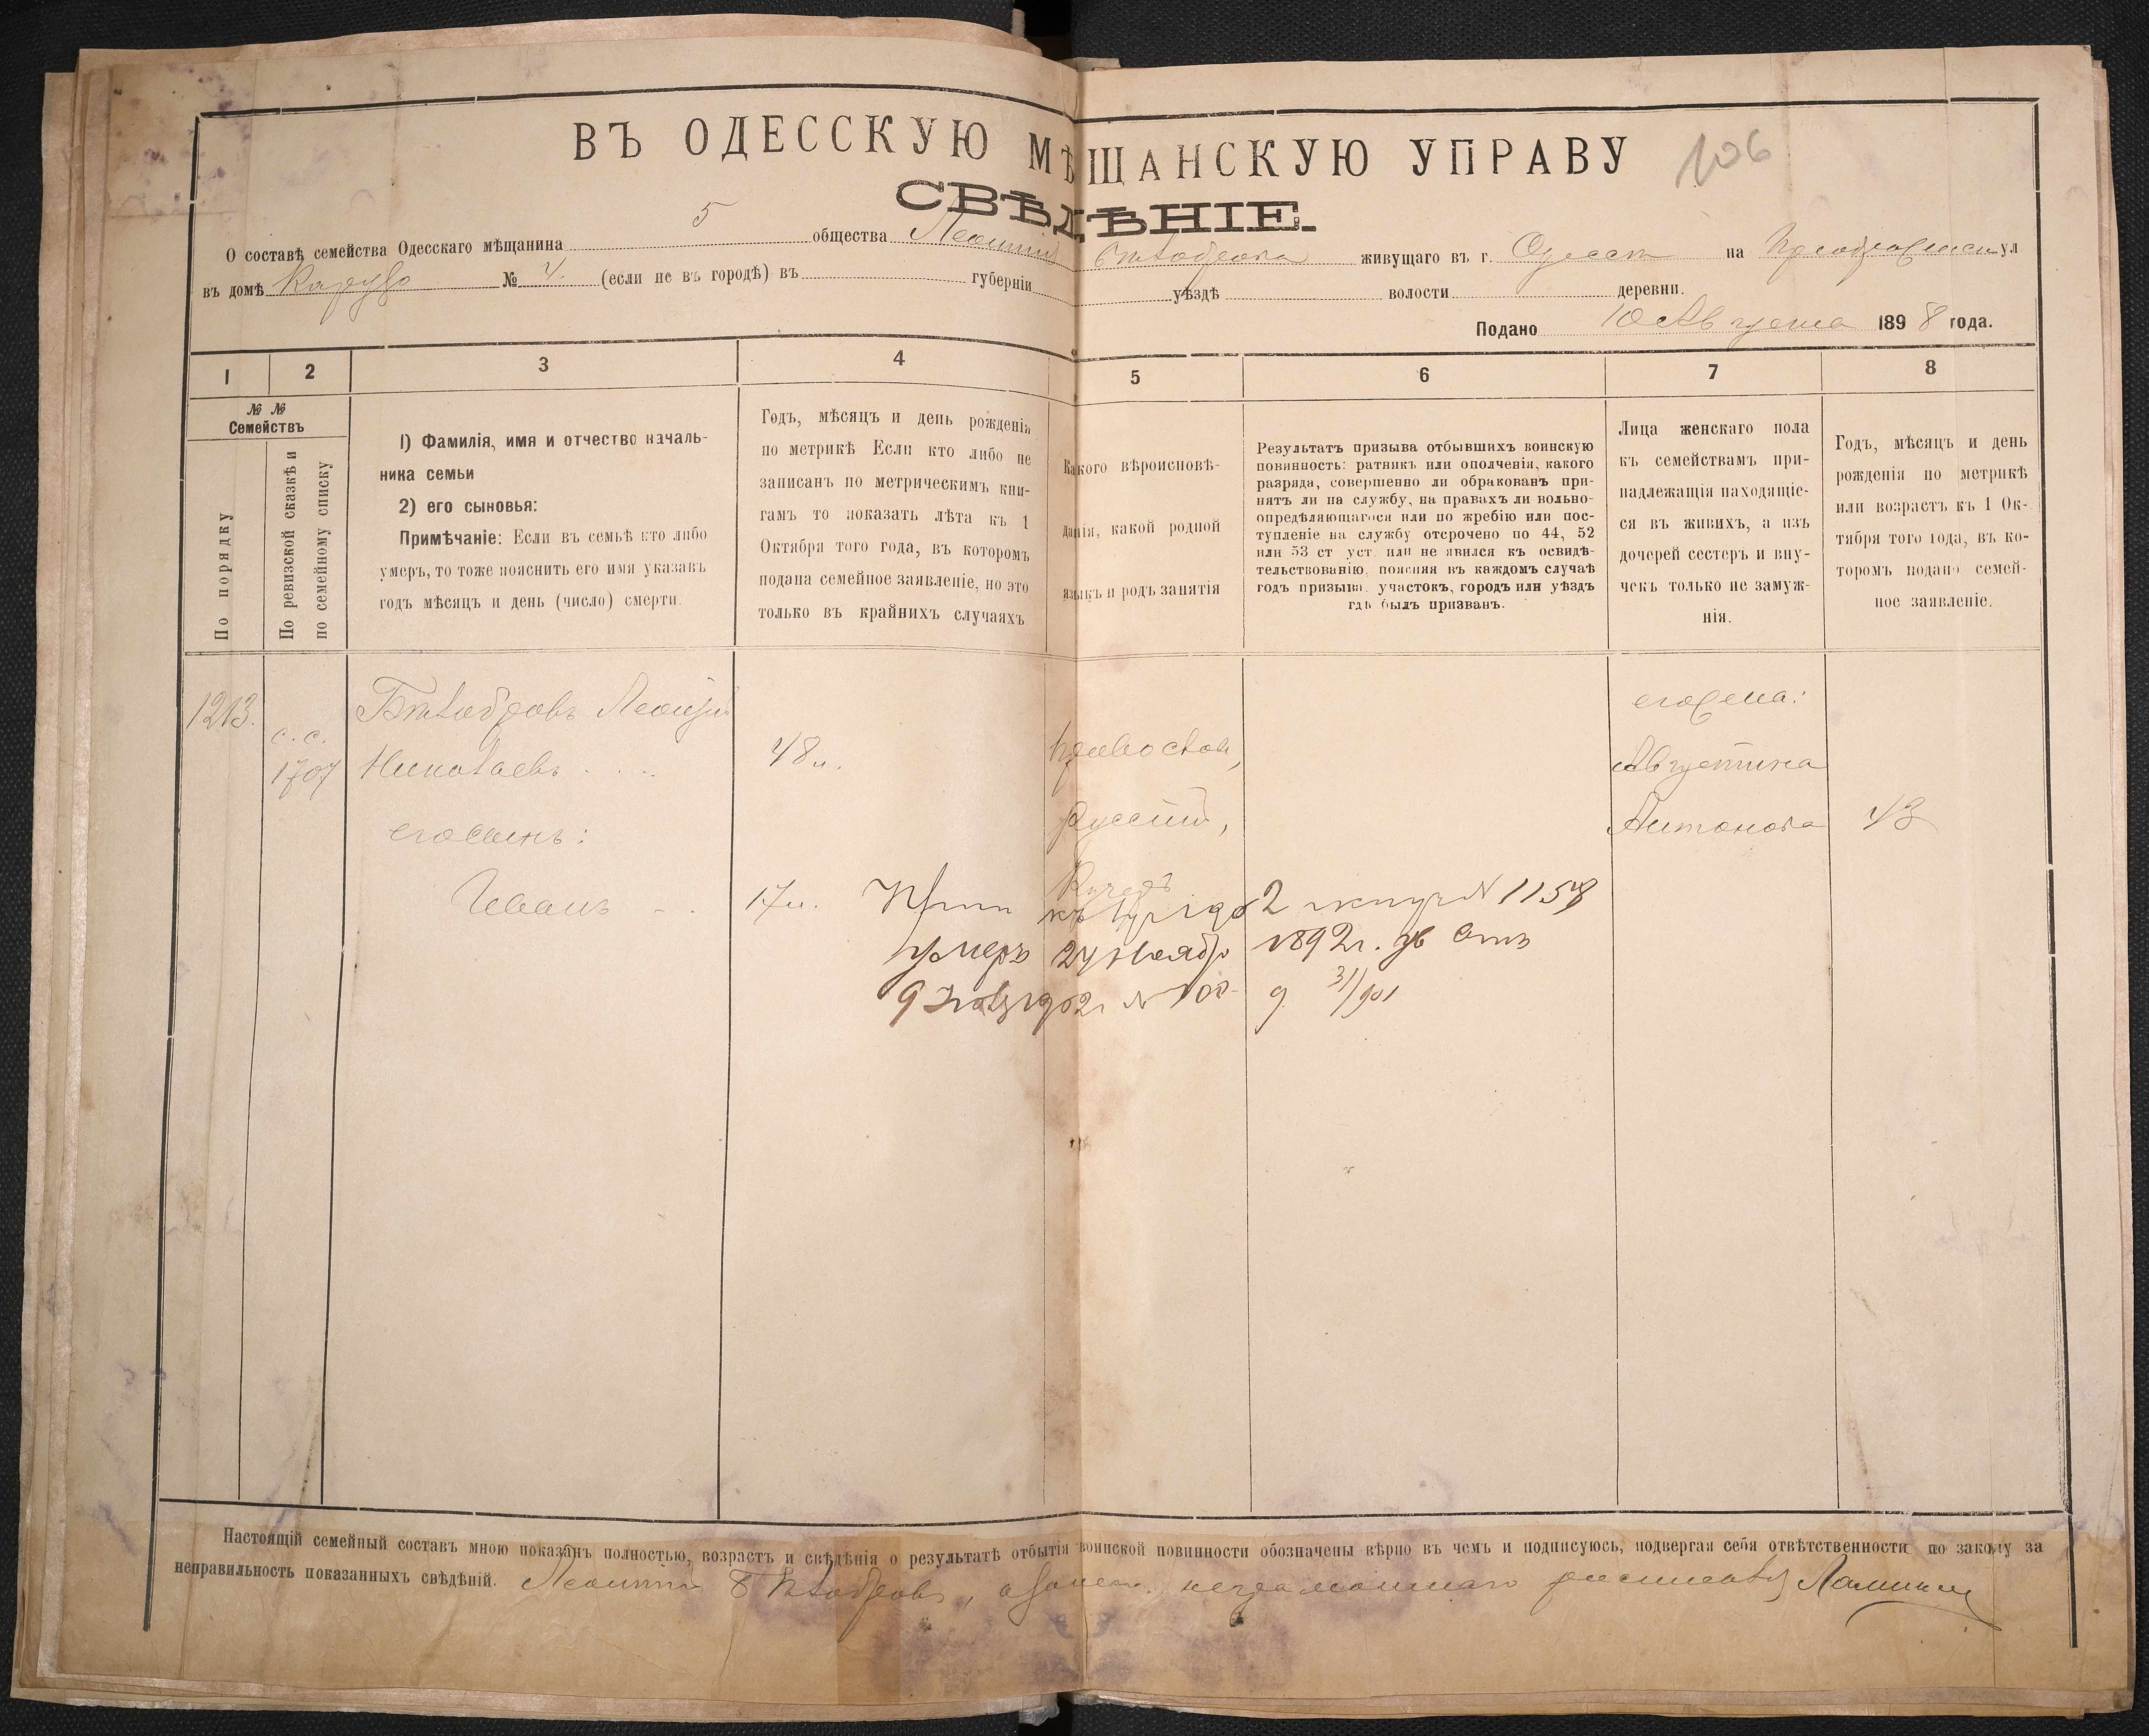 ВЪ ОДЕССКУЮ МѢЩАНСКУЮ УПРАВУ
106
СВѢДѢНІЕ.
О составѣ семейства Одесскаго мѣщанина 5 общества Леонтій Бѣлоброва живущаго въ г. Одессѣ на ул
въ домѣ Карузо № 4. (если не въ городѣ) въ губерніи уѣздѣ волости деревни.
Подано 10 Августа 1898 года.
1 2 3 4 5 6 7 8
№ № Семействъ
По порядку
По ревизской сказкѣ и
по семейному списку
1) Фамилія, имя и отчество началь-
ника семьи
2) его сыновья:
Примѣчаніе: Если въ семьѣ кто либо
умеръ, то тоже пояснить его имя указавъ
годъ мѣсяцъ и день (число) смерти.
Годъ, мѣсяцъ и день рожденія
по метрикѣ Если кто либо не
записанъ по метрическимъ кни-
гамъ то показать лѣта къ 1
Октября того года, въ которомъ
подана семейное заявленіе, но это
только въ крайнихъ случаяхъ
Какого вѣроисповѣ-
данія, какой родной
языкъ и родъ занятія
Результатъ призыва отбывшихъ воинскую
повинность: ратникъ или ополченія, какого
разряда, совершенно ли обракованъ при-
нятъ ли на службу, на правахъ ли вольно-
опредѣляющагося или по жребію или пос-
тупленіе на службу отсрочено по 44, 52
или 53 ст уст. или не явился къ освидѣ-
тельствованію, поясняя въ каждомъ случаѣ
годъ призыва, участокъ, городъ или уѣздъ
гдѣ былъ призванъ.
Лица женскаго пола
къ семействамъ при-
надлежащія находящіе-
ся въ живихъ, а изъ
дочерей сестеръ и вну-
чекъ только не замуж-
нія.
Годъ, мѣсяцъ и день
рожденія по метрикѣ
или возрастъ къ 1 Ок-
тября того года, въ ко-
торомъ подано семей-
ное заявленіе.
1213.
с. с.
1707
Бѣлобровъ Леонтій
Николаевъ
48 л.
Православн,
Русскій,
Кучеръ
его жена:
Августина
Антонова
43
его сынъ:
Иванъ
17 л.
къ 2 № 1158
умеръ 24 Ноября 1892 г.
9 1902 г № 100
31/901
Настоящій семейный составъ мною показанъ полностью, возрастъ и свѣдѣнія о результатѣ отбытія воинской повинности обозначены вѣрно въ чемъ и подписуюсь, подвергая себя отвѣтственности по закону за
неправильность показанныхъ свѣдѣній. Леонтій Бѣлобровъ, а неграмотнаго росписался